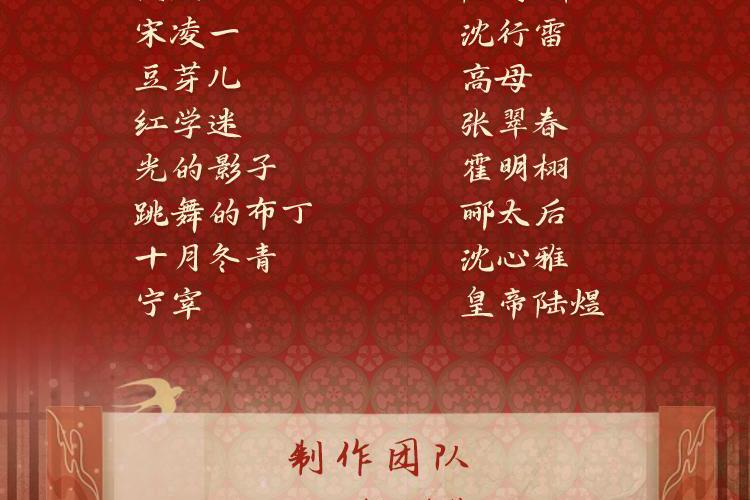 宋凌一 沈行雷
豆芽儿 高母
红学迷 张翠春
光的影子 霍明栩
跳舞的布丁 郦太后
十月冬青 沈心雅
宁宰 皇帝陆煜
制作团队